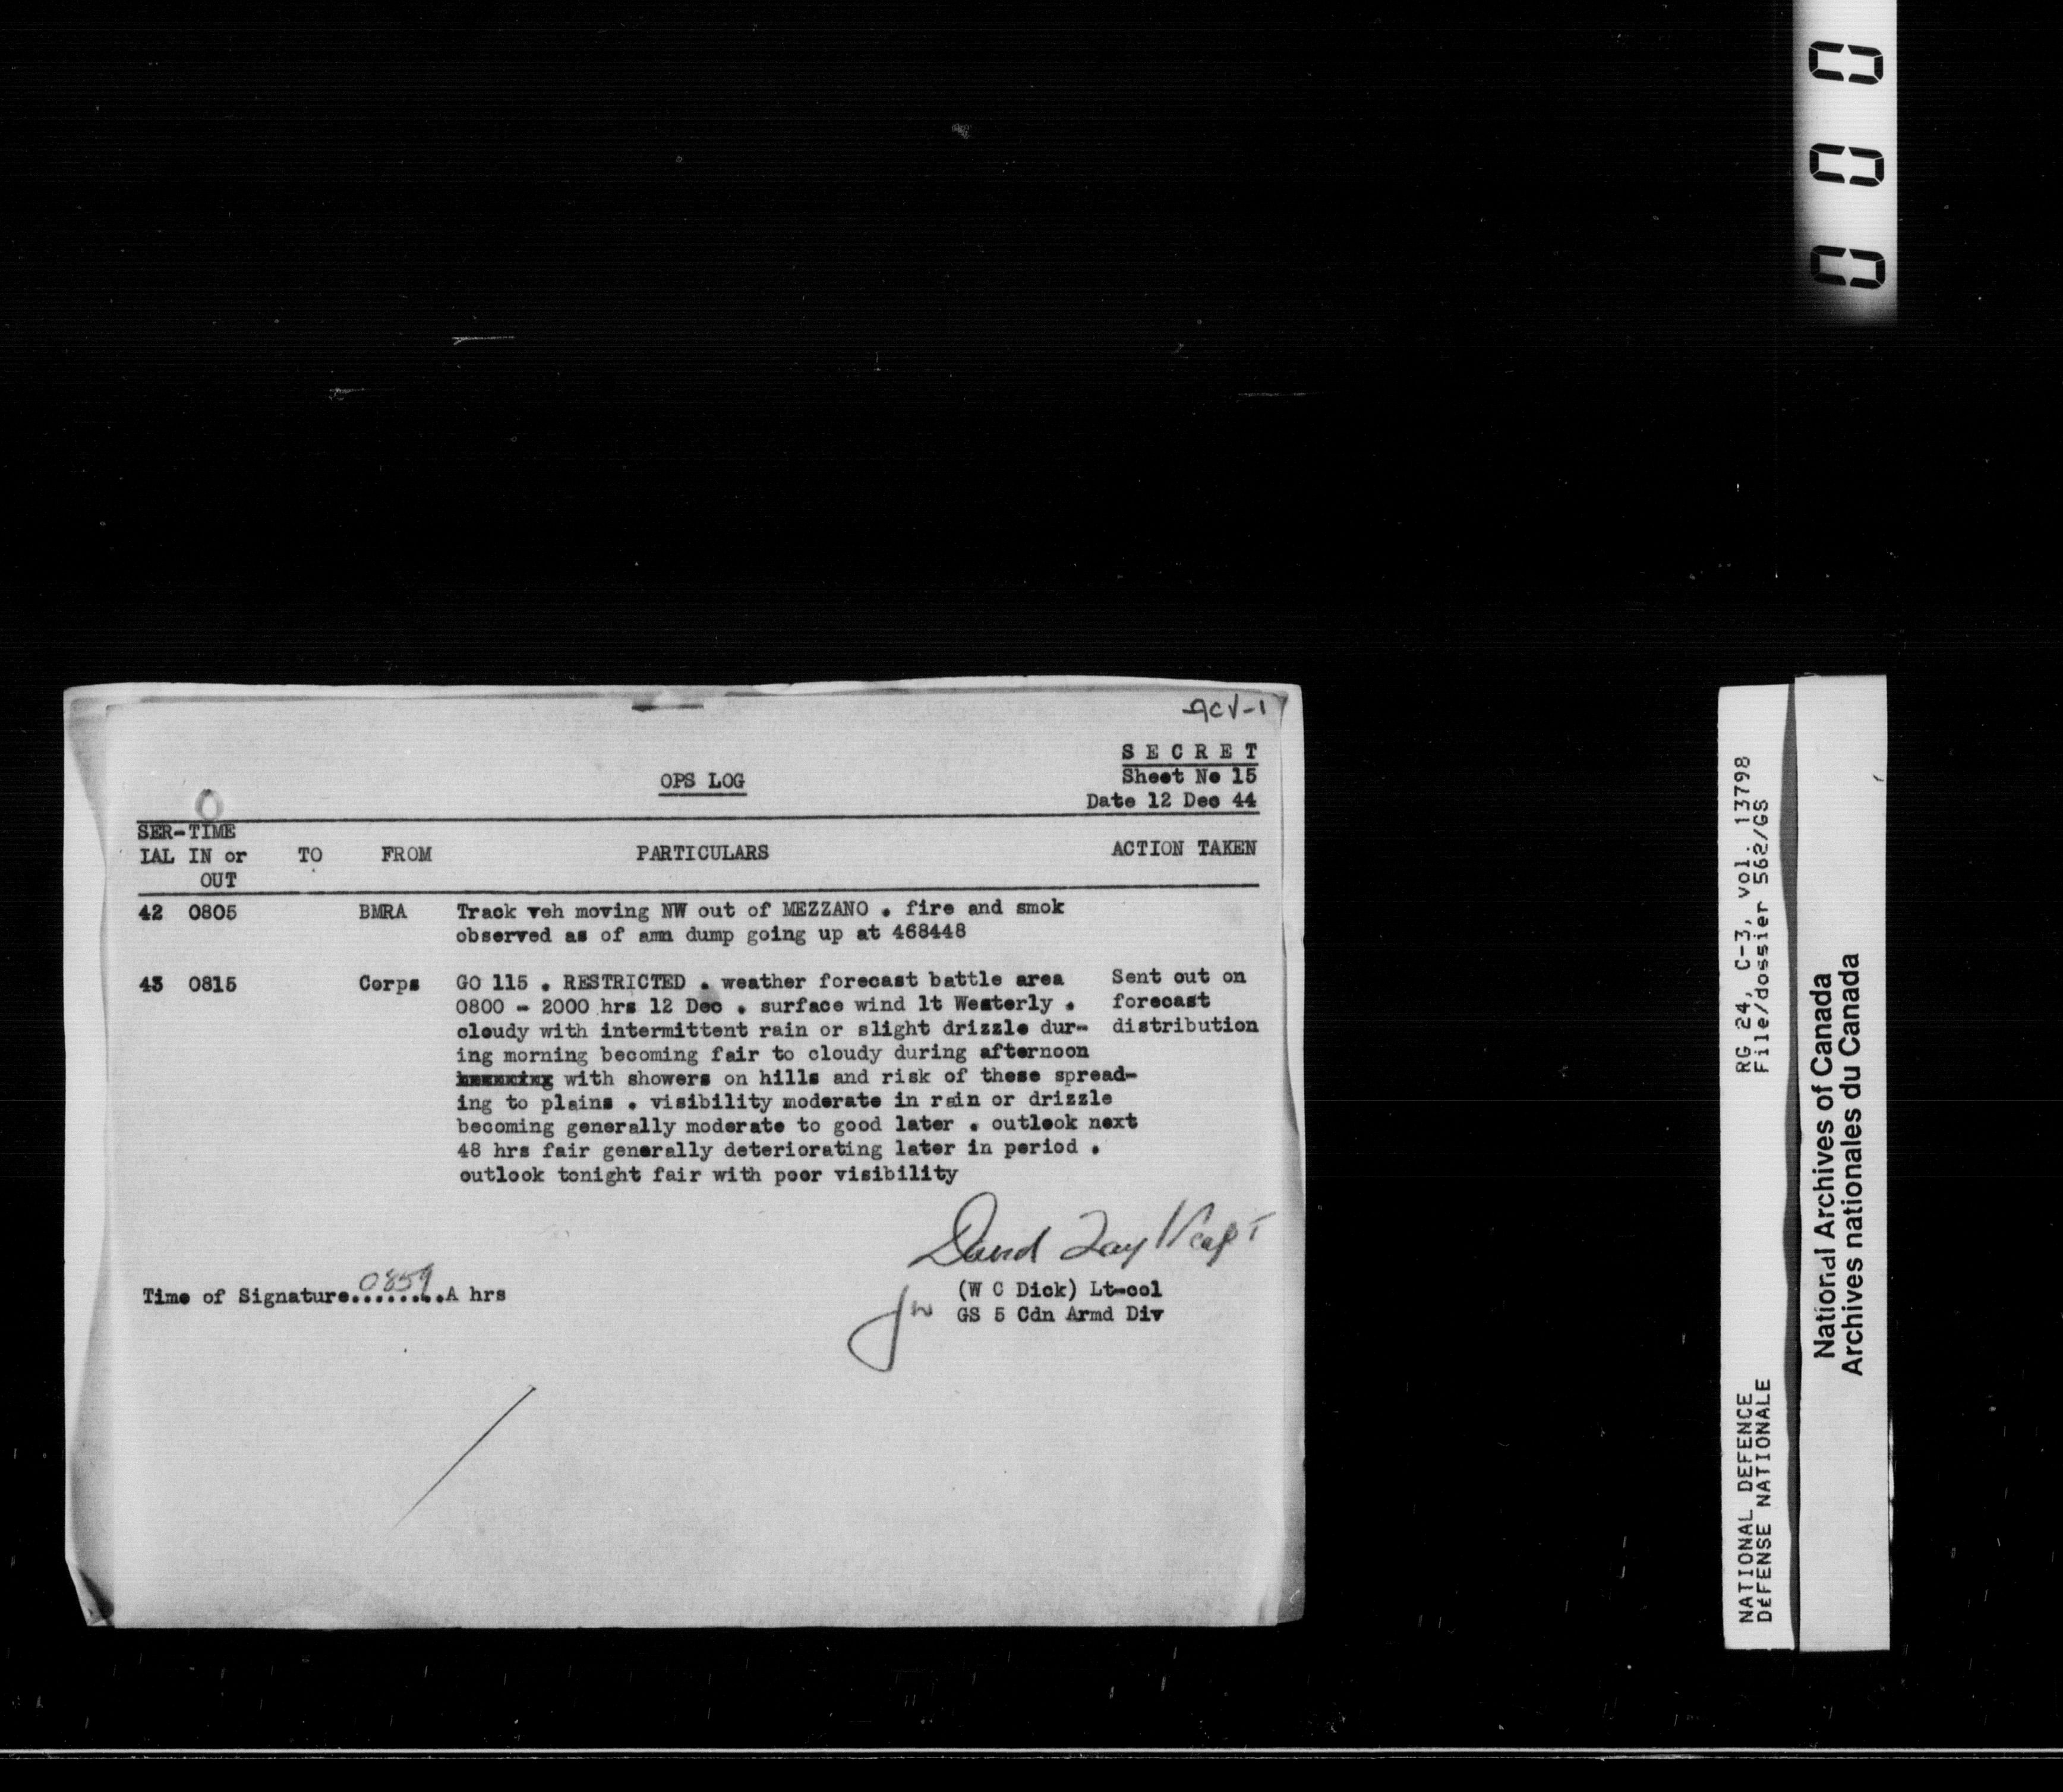 0 0 0
ACV-1
S E C R E T
OPS LOG
Sheet No 15
Date 12 Dec 44
SER- TIME
IAL IN or TO FROM PARTICULARS ACTION TAKEN
OUT
42 0805 BMRA Track veh moving NW out of MEZZANO . fire and smok
observed as of amn dump going up at 468448
43 0815 Corps GO 115 . RESTRICTED . weather forecast battle area Sent out on
0800 - 2000 hrs 12 Dec . surface wind lt Westerly . forecast
cloudy with intermittent rain or slight drizzle dur- distribution
ing morning becoming fair to cloudy during afternoon
with showers on hills and risk of these spread-
ing to plains . visibility moderate in rain or drizzle
becoming generally moderate to good later . outlook next
48 hrs fair generally deteriorating later in period .
outlook tonight fair with poor visibility
David Capt
Time of Signature.........A hrs 0859
(W C Dick) Lt-col
GS 5 Cdn Armd Div
RG 24, C-3, vol. 13798
File/dossier 562/GS
NATIONAL DEFENCE
DéFENSE NATIONALE
National Archives of Canada
Archives nationales du Canada